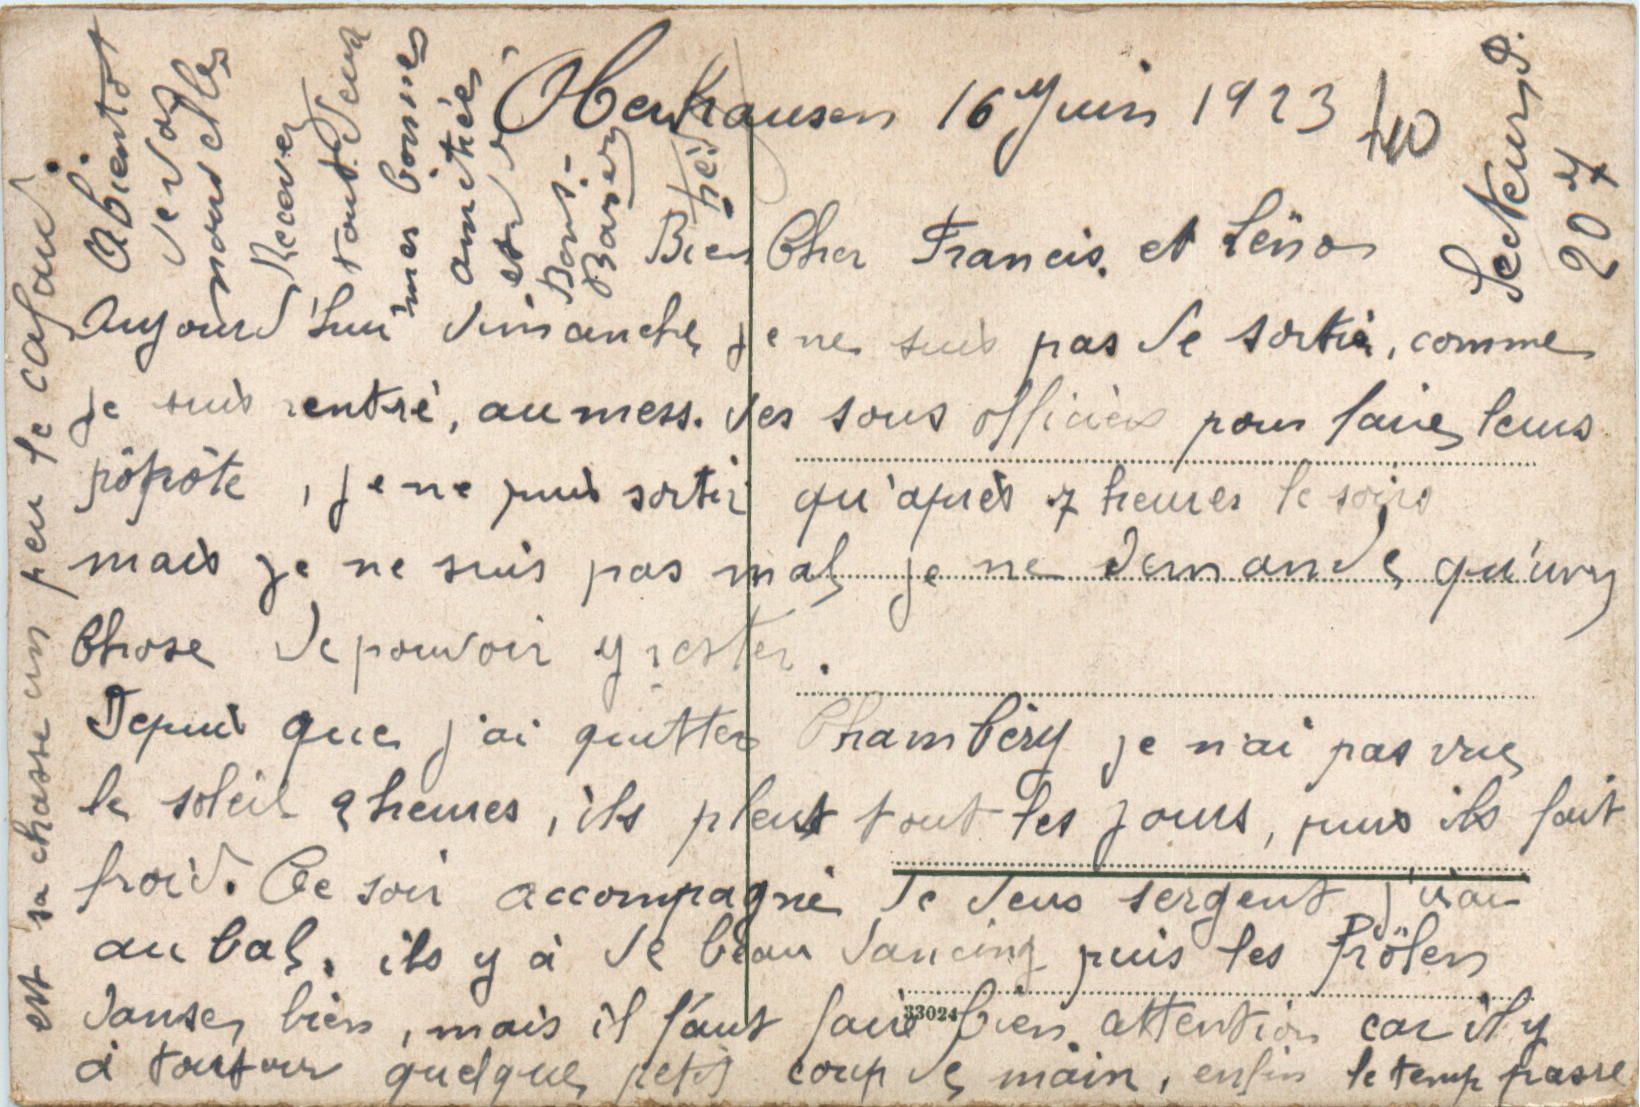 Oberhausen 16 Juin 1923
Secteur P.
207
Bien Cher Francis. et Léno
Aujourd'hui dimanche je ne suis pas de sortie, comme
je suis rentré, au mess. des sous officiers pour faire leurs
pôpôte, je ne puis sortir qu'après 7 heures le soirs
mais je ne suis pas mal je ne demande qu'une
Chose de pouvoir y rester.
Depuis que j'ai quitter Chambéry je n'ai pas vue
le soleil 2 heures, ils pleut tout les jours, puis ils fait
froid. Ce soir accompagné de deux sergent j'irai
au bal, ils y à de beau dancing puis les Frölen
danse bien, mais il faut faire bien attention car il y
à toujour quelque petit coup de main, enfin le temp passe
est sa chasse un peu le cafard.
Abientot
de vos
nouvelles
Recever
tout deux
mes bonnes
amitiées
est
Bons-
Baisers
33024